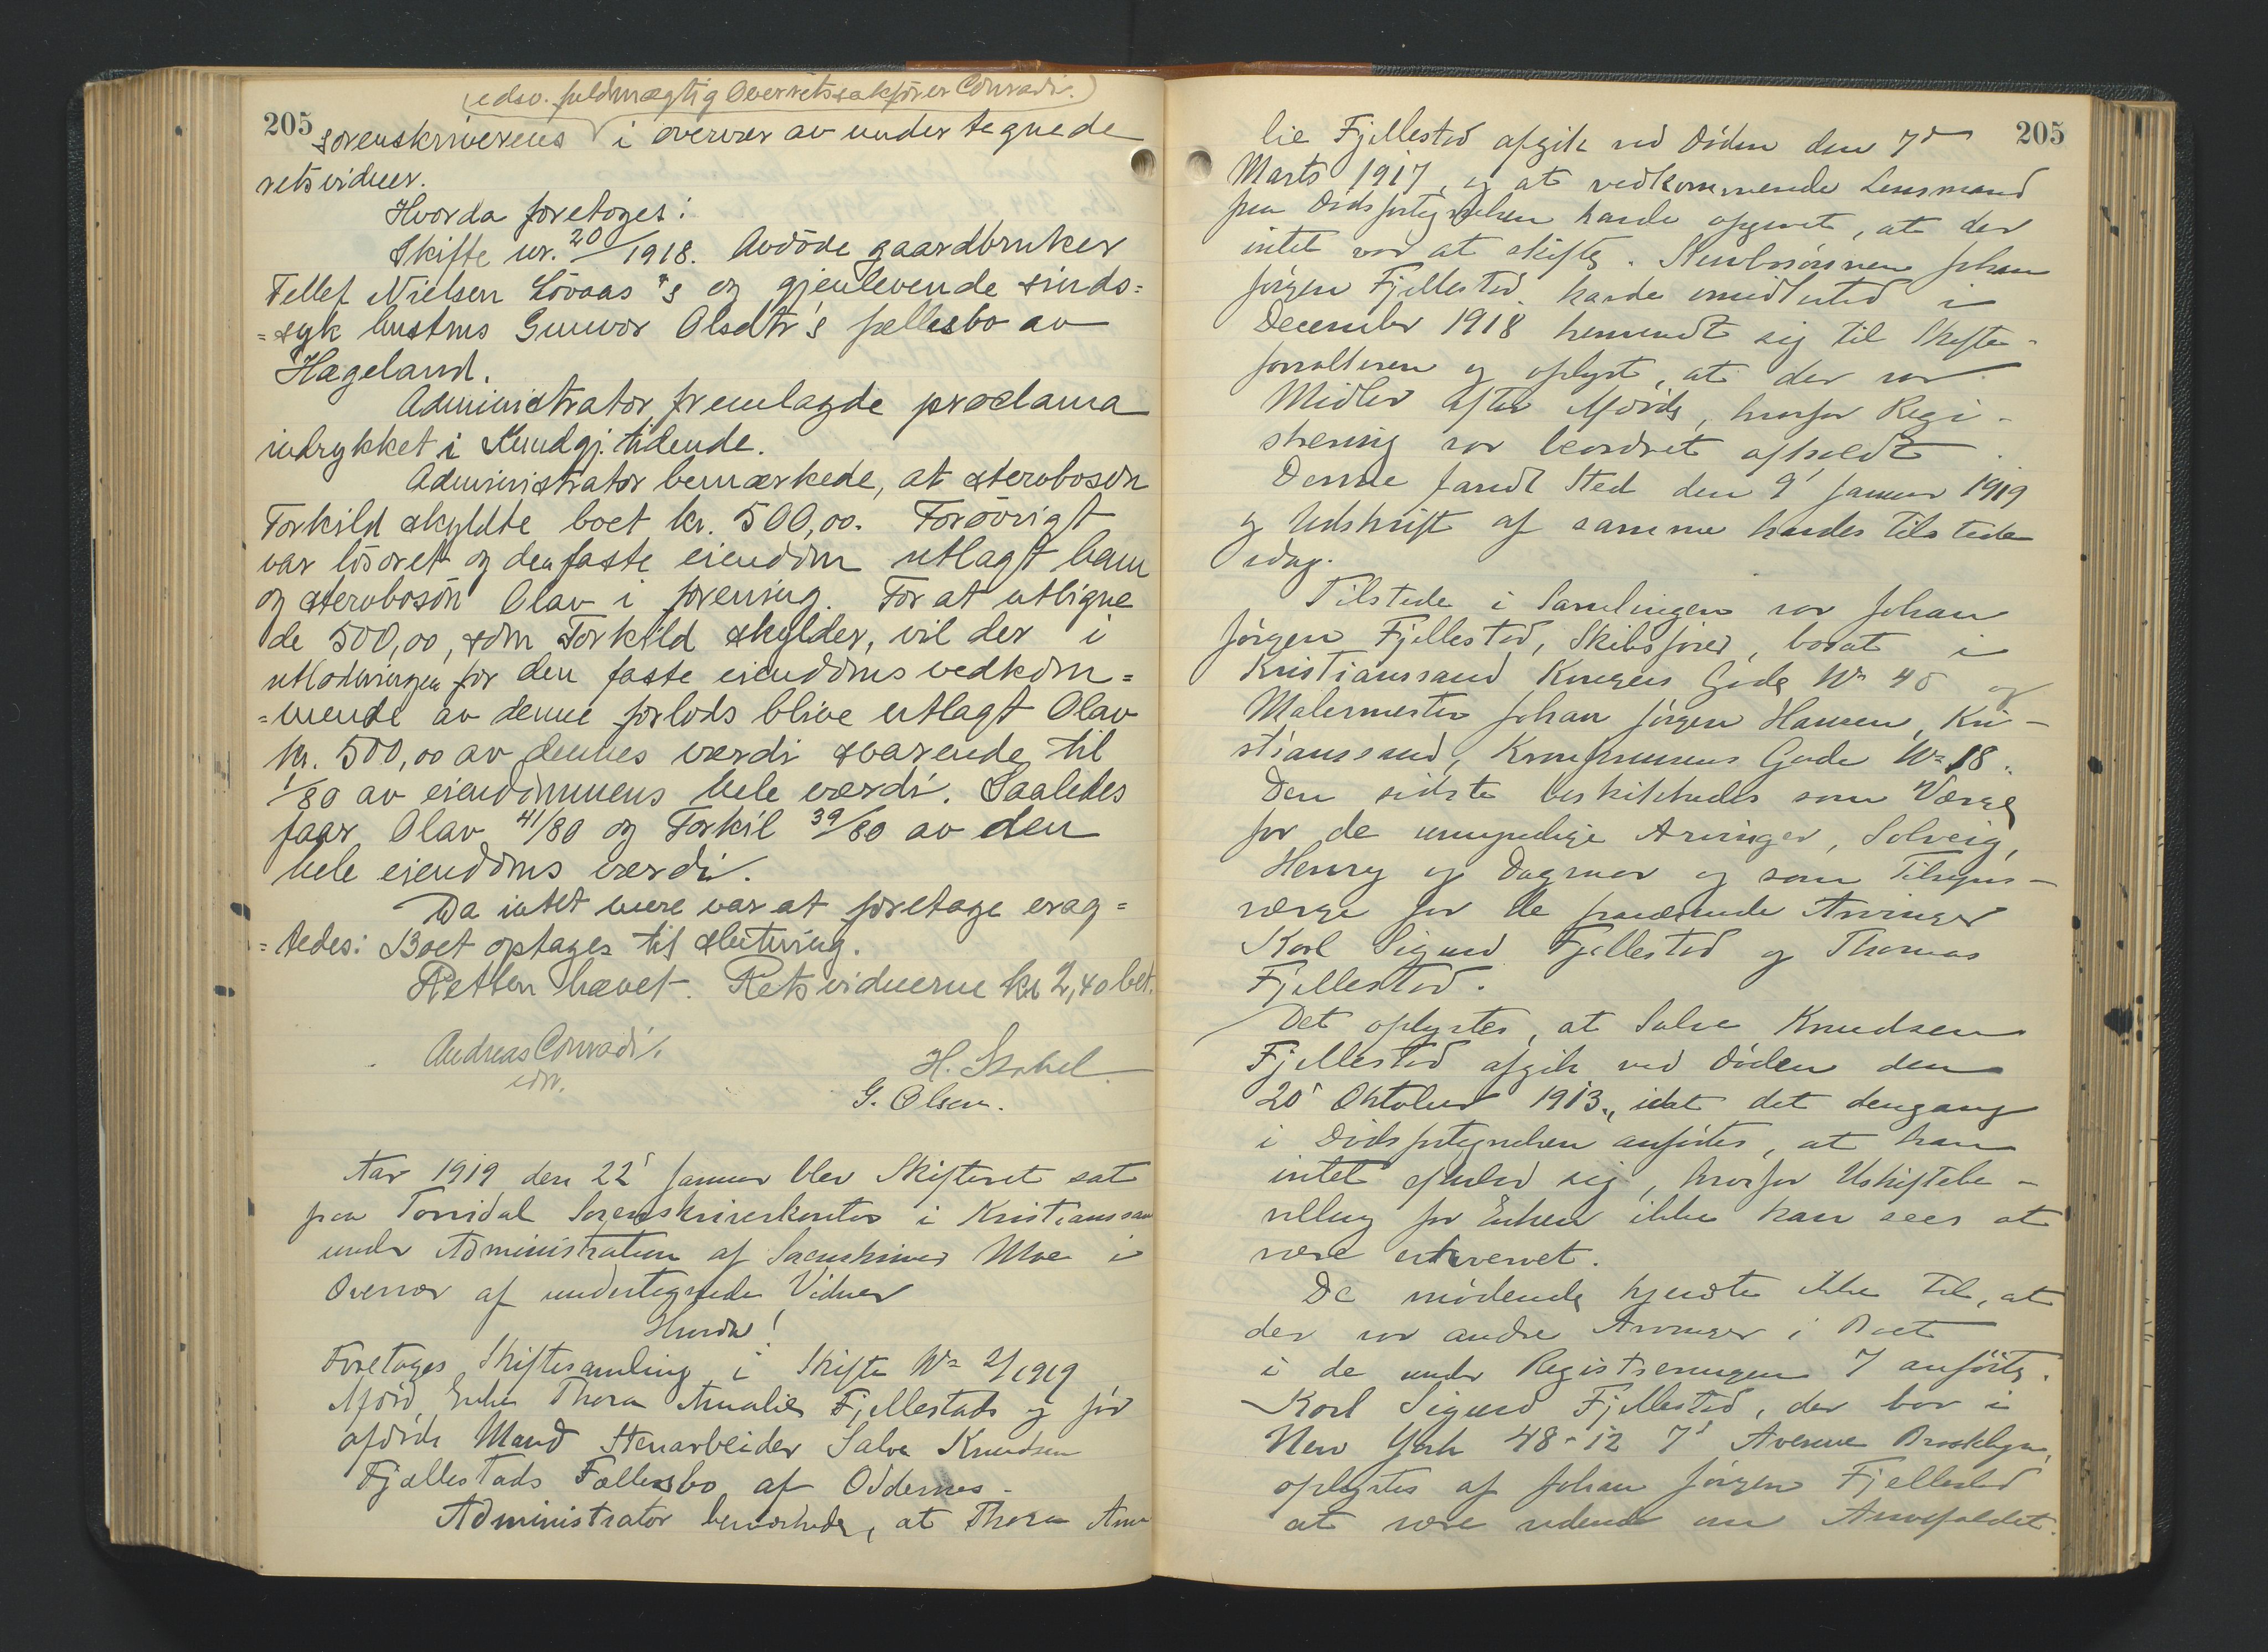 (edsv. fuldmægtig Overretssakfører Conradi.)
205
sorenskriverens i overvær av undertegnede
retsvidner.
Hvorda foretoges:
Skifte nr. 20/1918. Avdöde gaardbruker
Tellef Nielsen Lövaas's og gjenlevende sinds=
=syk hustrus Gunvor Olsdtr's fællesbo av
Hægeland.
Administrator fremlagde proclama
indrykket i Kundgj. tidende.
Administrator bemærkede, at stervbosön
Torkild skyldte boet kr. 500,00. Forövrigt
var lösöret og den faste eiendom utlagt ham
og stervbosön Olav i forening. For at utligne
de 500,00, som Torkild skylder, vil der i
utlodningen for den faste eiendoms vedkom=
=mende av denne forlods blive utlagt Olav
kr. 500,00 av dennes værdi svarende til
1/80 av eiendommens hele værdi. Saaledes
faar Olav 41/80 og Torkil 39/80 av den
hele eiendoms værdi.
Da intet mere var at foretage erag=
=tedes: Boet optages til slutning.
Retten hævet. Retsvidnerne kr 2,40 bet.
Andreas Conradi.
edsv.
H.
G. Olsen.
Aar 1919 den 22' Januar blev Skifteret sat
paa Torridal Sorenskriverkontor i Kristianssan
under Administration af Sorenskriver Moe i
Overvær af undertegnede Vidner
Hvorda!
Foretoges Skiftesamling i Skifte No 2/1919
Afdöd Enke Thora Amalie Fjellestads og för
afdöde Mand Stenarbeider Salve Knudsen
Fjellestads Fællesbo af Oddernes.
Administrator bemærkede, at Thora Ama
205
lie Fjellestad afgik ved Döden den 7de
Marts 1917, og at vedkommende Lensmand
paa Dödsfortegnelsen havde opgivet, at der
intet var at skifte. Stervbosönnen Johan
Jörgen Fjellestad havde imidlertid i
December 1918 henvendt sig til Skifte-
forvalteren og oplyst, at der var
Midler efter Afdöde, hvorfor Regi-
strering var beordret afholdt.
Denne fandt Sted den 9' Januar 1919
og Udskrift af samme havdes tilstede
idag.
Tilstede i Samlingen var Johan
Jörgen Fjellestad, Skibsförer, bosat i
Kristianssand Kongens Gade No 45 og
Malermester Johan Jörgen Hansen, Kri-
stianssand, Kronprinsens Gade No 18.
Den sidste beskikkedes som Værge
for de umyndige Arvinger, Solveig,
Henry og Dagmar og som Tilsyns-
værge for de fraværende Arvinger
Karl Sigurd Fjellestad og Thomas
Fjellestad.
Det oplystes, at Salve Knudsen
Fjellestad afgik ved Döden den
20' Oktober 1913, idet det dengang
i Dödsfortegnelsen anförtes, at han
intet efterlod sig, hvorfor Uskiftebe-
villing for Enken ikke kan sees at
være erhvervet.
De mödende kjendte ikke til, at
der var andre Arvinger i Boet
i de under Registreringen 7 anförte.
Karl Sigurd Fjellestad, der bor i
New York 48-12 7' Avenue Brooklyn,
oplystes af Johan Jörgen Fjellestad
at være vidende om Arvefaldet.